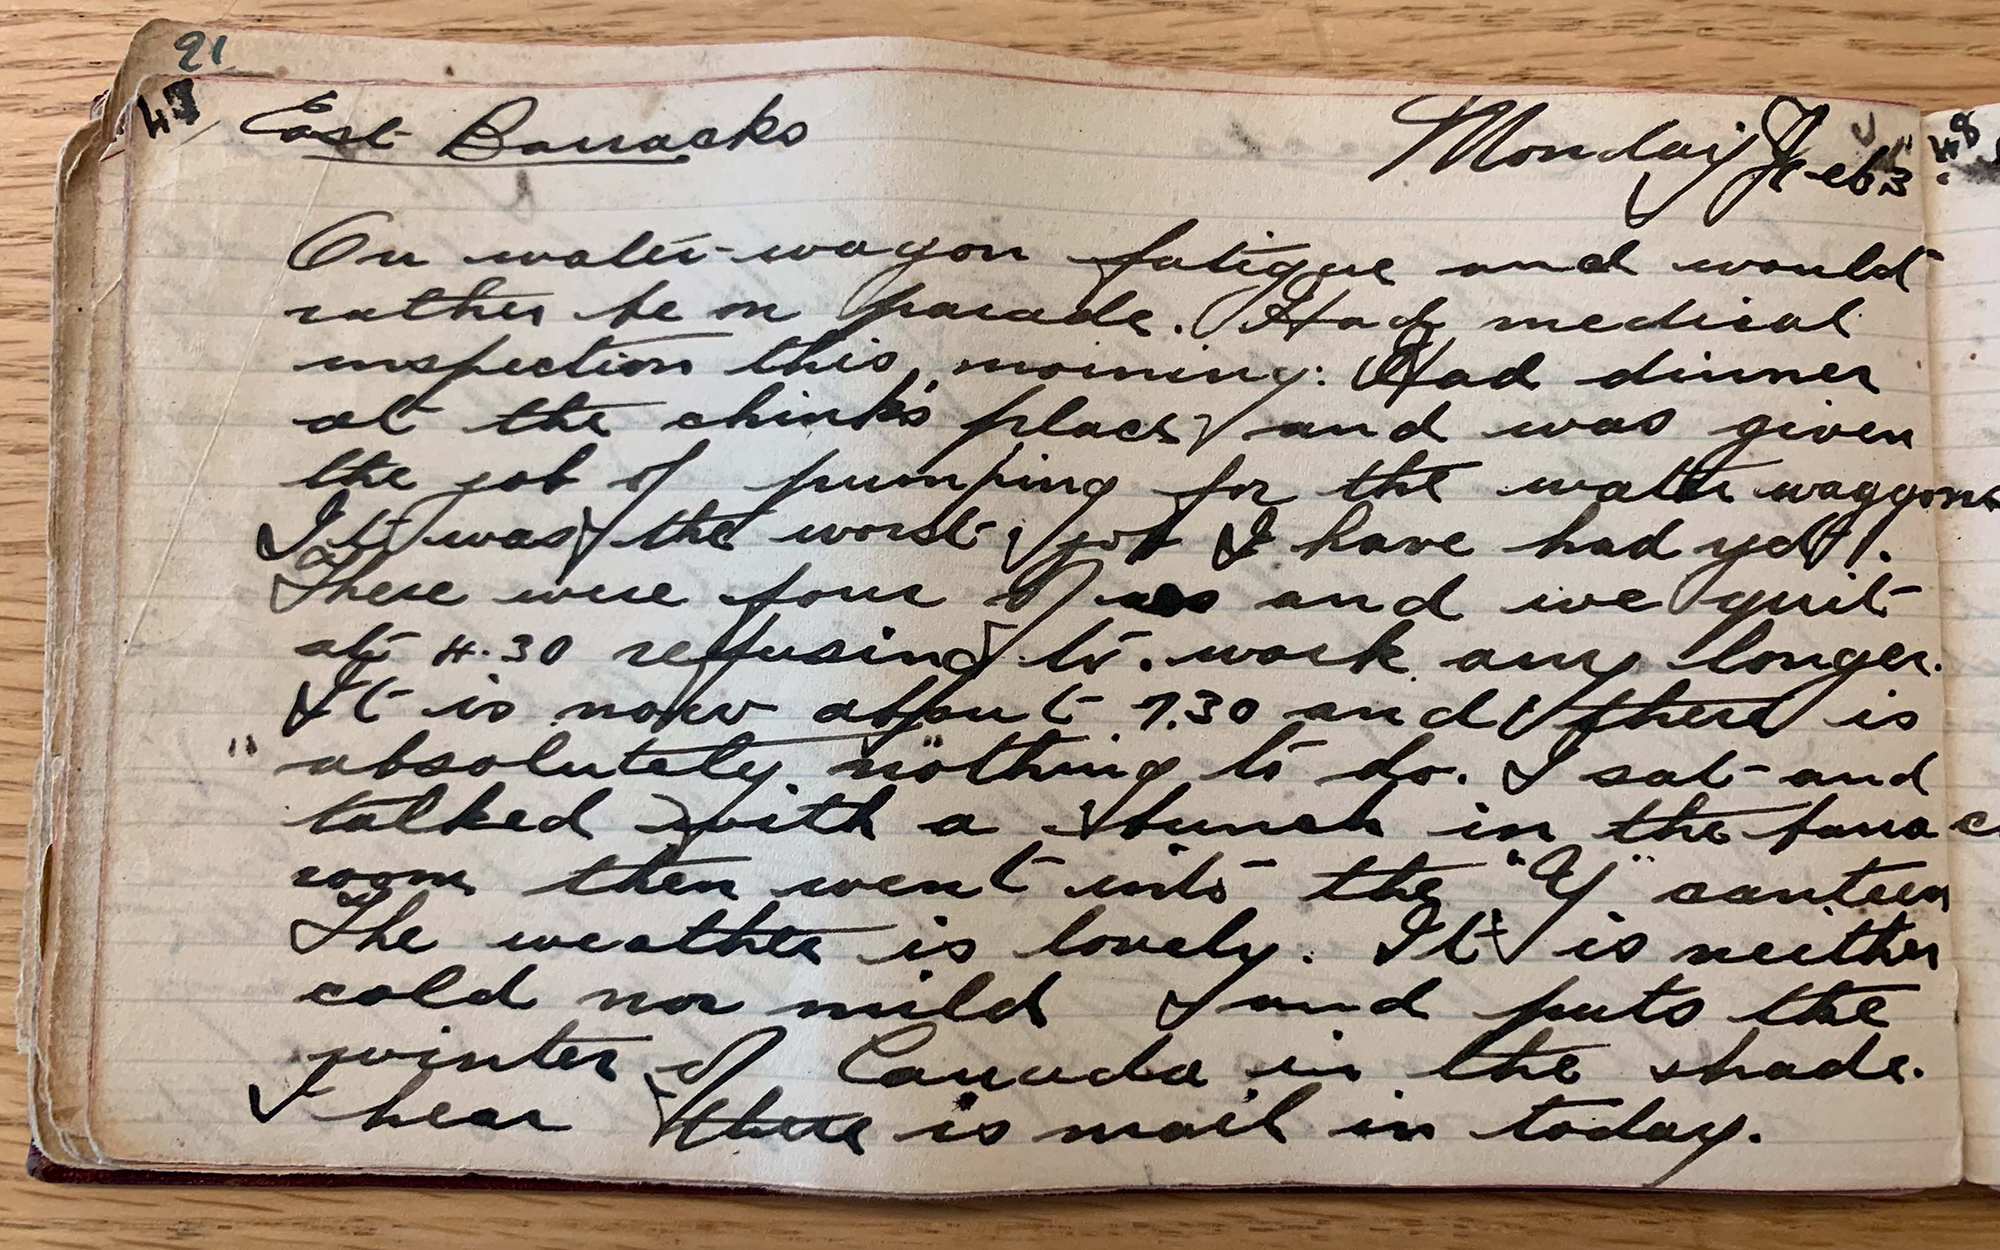 91
47 East Barracks Monday Feb 3 48
On water-wagon fatigue and would
rather be on parade. Had medical
inspection this morning. Had dinner
at the chink's place and was given
the job of pumping for the water waggons
It was the worst job I have had yet.
There were four of us and we quit
at 4.30 refusing to work any longer.
It is now about 7.30 and there is
"absolutely nothing" to do. I sat and
talked with a bunch in the furnace
room then went into the "Y" canteen
The weather is lovely. It is neither
cold nor mild and puts the
winter of Canada in the shade.
I hear there is mail in today.